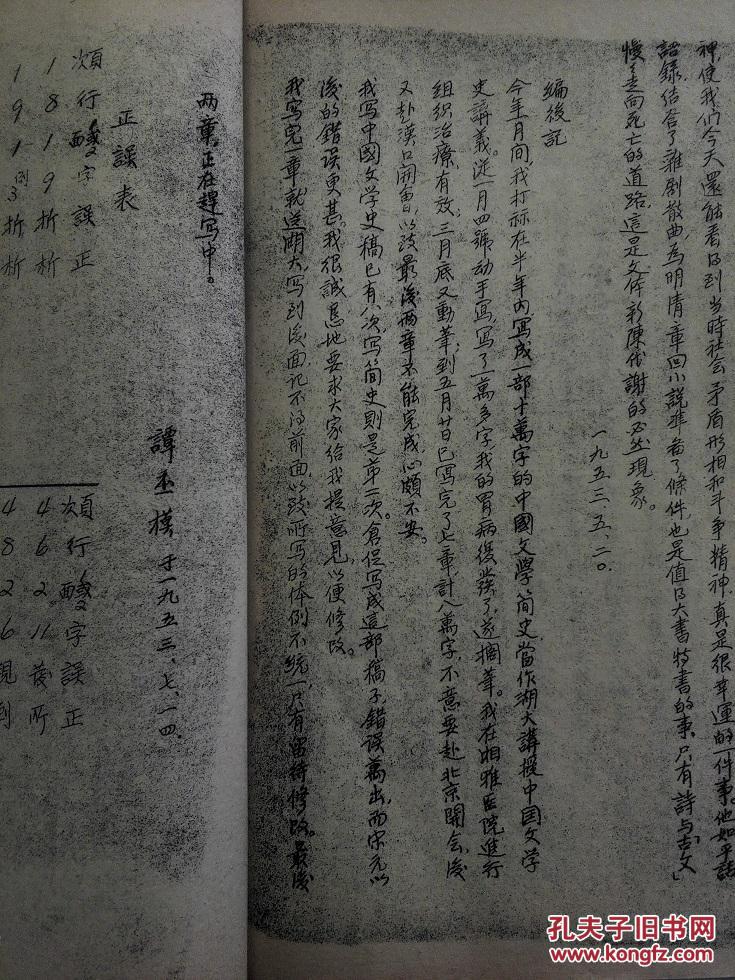 神,使我们今天還能看得到当時社会矛盾形相和斗争精神,真是很幸運的一件事。他如平話
話録,结合了雜剧散曲,為明清章回小説準备了條件,也是值得大書特書的事,只有詩与「古文」
慢慢走向死亡的道路,這是文体新陳代謝的必然現象。
一九五三、五、二〇。
編後記
今年一月间,我打祘在半年内,寫成一部十萬字的中國文學简史,當作湖大講授中国文学
史講義。從一月四號动手寫,寫了一萬多字,我的胃病復發了,遂擱筆。我在湘雅医院進行
组织治療,有效;三月底又動筆;到五月廿日已寫完了七章計八萬字,不意要赴北京開会,後
又赴漢口開會,以致最後两章不能完成,心頗不安。
我写中國文学史稿已有八次,写简史則是第一次。倉促写成這部稿子,錯误萬出,而宋元以
後的錯误更甚。我很誠恳地要求大家给我提意見,以便修改。
我写完一章就送湖大,写到後面記不得前面,以致所写的体例不统一,只有留待修改。最後
两章,正在趕写中。
譚丕模 于一九五三、七、一四、
正誤表
頁行 字誤正
1 8 1 9 折析
1 9 1 例3 折析
頁行 字誤正
4 6 2 11 後所
4 8 2 6 現到
孔夫子旧书网
www.kongfz.com